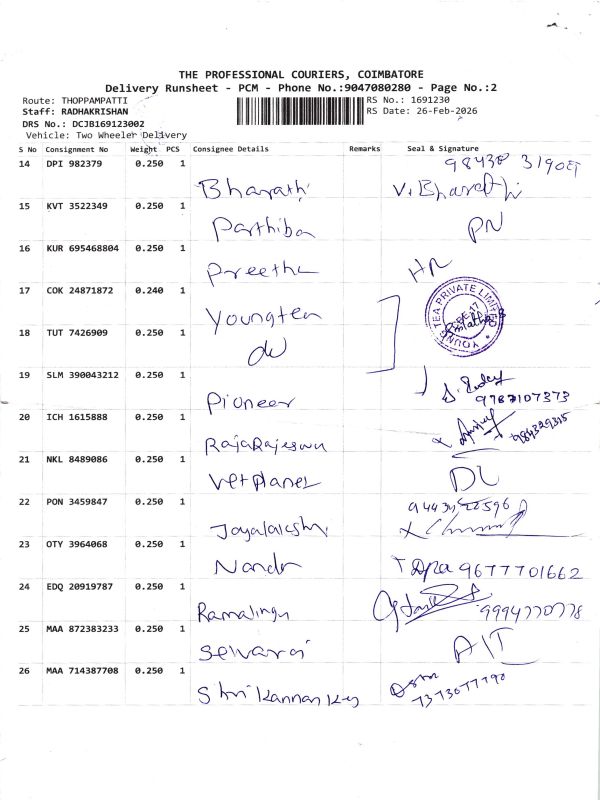 THE PROFESSIONAL COURIERS, COIMBATORE
Delivery Runsheet - PCM - Phone No.:9047080280 - Page No.:2
Route: THOPPAMPATTI
RS No.: 1691230
Staff: RADHAKRISHAN
RS Date: 26-Feb-2026
DRS No.: DCJB169123002
Vehicle: Two Wheeler Delivery
S No Consignment No Weight PCS Consignee Details Remarks Seal & Signature
14 DPI 982379 0.250 1 Bharathi V. Bharathi
15 KVT 3522349 0.250 1 Parthiban PN
16 KUR 695468804 0.250 1 Preetha HR
17 COK 24871872 0.240 1 Youngtea
YOUNG TEA PRIVATE LIMITED
18 TUT 7426909 0.250 1
19 SLM 390043212 0.250 1 Pioneer
9787107373
20 ICH 1615888 0.250 1 RajaRajeswari
21 NKL 8489086 0.250 1 Vetplanet DL
22 PON 3459847 0.250 1 Jayalakshmi
23 OTY 3964068 0.250 1 Nandr 9677701662
24 EDQ 20919787 0.250 1 Ramalingu 9994770778
25 MAA 872383233 0.250 1 Selvaraj AIT
26 MAA 714387708 0.250 1 Shri Kannan
7373077790